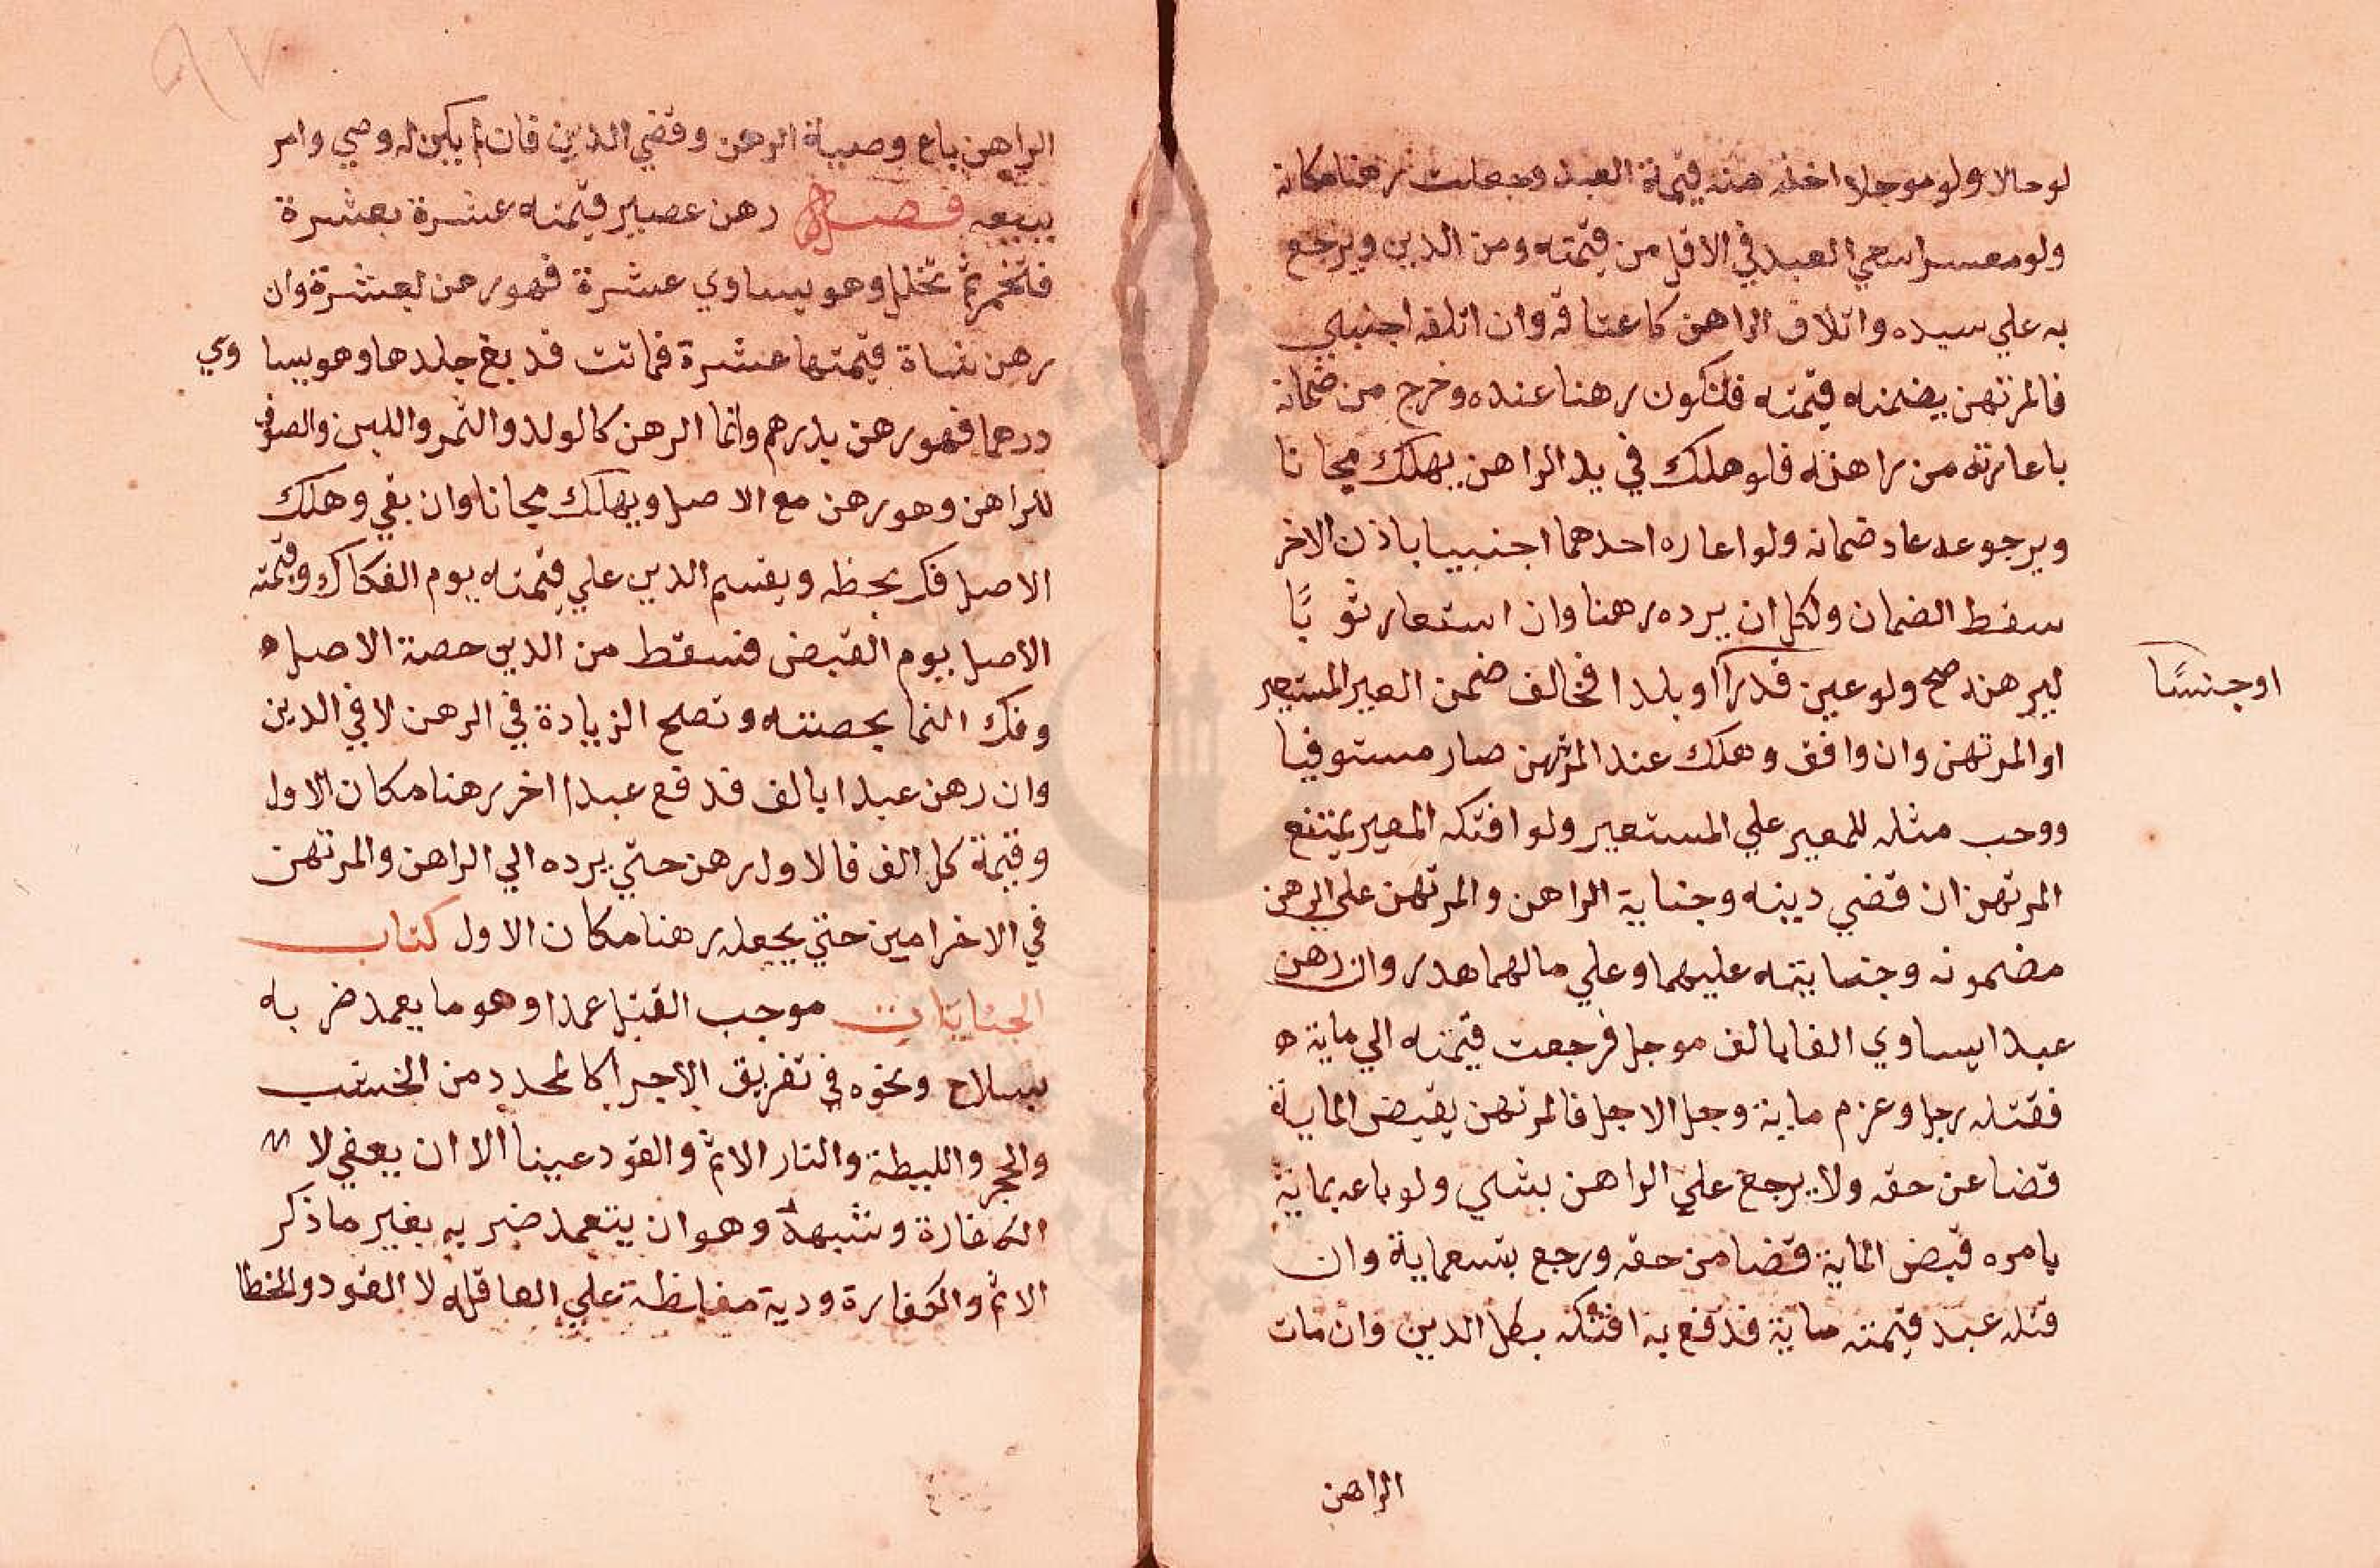 لو حالا ولو موجلا اخذ منه قيمة العبد وجعلت رهنا مكانه
ولو معسرا سعي العبد في الاقل من قيمته ومن الدين ويرجع
به علي سيده واتلاف الراهن كاعتاقه وان اتلفه اجنبي
فالمرتهن يضمنه قيمته فتكون رهنا عنده وخرج من ضمانه
باعارته من راهنه فلو هلك في يد الراهن يهلك مجانا
وبرجوعه عاد ضمانه ولو اعاره احدهما اجنبيا باذن الاخر
سقط الضمان ولكل ان يرده رهنا وان استعار ثوبًا
ليرهنه صح ولو عين قدرا او بلدا فخالف ضمن العير المستعير
او جنسًا
او المرتهن وان وافق وهلك عند المرتهن صار مستوفيا
ووجب مثله للمعير علي المستعير ولو افتكه المعير يمتنع
المرتهن ان قضي دينه وجناية الراهن والمرتهن علي الرهن
مضمونه وجنايته عليهما وعلي مالهما هدر وان رهن
عبدا يساوي الفا بالف موجل فرجعت قيمته الي ماية ه
فقتله رجل وعزم ماية وجل الاجل فالمرتهن يقبض الماية
قضا عن حقه ولا يرجع علي الراهن بشي ولو باعه بماية
بامره قبض الماية قضا من حقه ورجع بتسعماية وان
قتله عبد قيمته ماية فدفع به افتكه بكل الدين وان مات
الراهن
الراهن باع وصية الرهن وقضي الدين فان لم يكن له وصي وامر
ببيعه فصل رهن عصير قيمته عشرة بعشرة
فتخمر ثم تخلل وهو يساوي عشرة فهو رهن لعشرة وان
رهن شاة قيمتها عشرة فماتت فدبغ جلدها وهو يساوي
درهما فهو رهن بدرهم وانما الرهن كالولد والثمر واللبن والصوف
للراهن وهو رهن مع الاصل ويهلك مجانا وان بقي وهلك
الاصل فك بحظه ويقسم الدين علي قيمته يوم الفكاك وقيمته
الاصل يوم القبض فسقط من الدين حصة الاصل ه
وفك النما بحصته وتصح الزيادة في الرهن لا في الدين
وان رهن عبدا بالف فدفع عبدا اخر رهنا مكان الاول
وقيمة كل الف فالاول رهن حتي يرده الي الراهن والمرتهن
في الاخر امين حتي يجعله رهنا مكان الاول كتاب
الجنايات موجب القتل عمدا وهو ما يعمد ضربه
بسلاح ونحوه في تفريق الاجرا كالمحدد من الخشب
والحجر والليطة والنار الاثم والقود عينا الا ان يعفي لا
الكفارة وشبهه وهو ان يتعمد ضربه بغير ما ذكر
الاثم والكفارة ودية مغلظة علي العاقله لا القود والخطا
٩٧